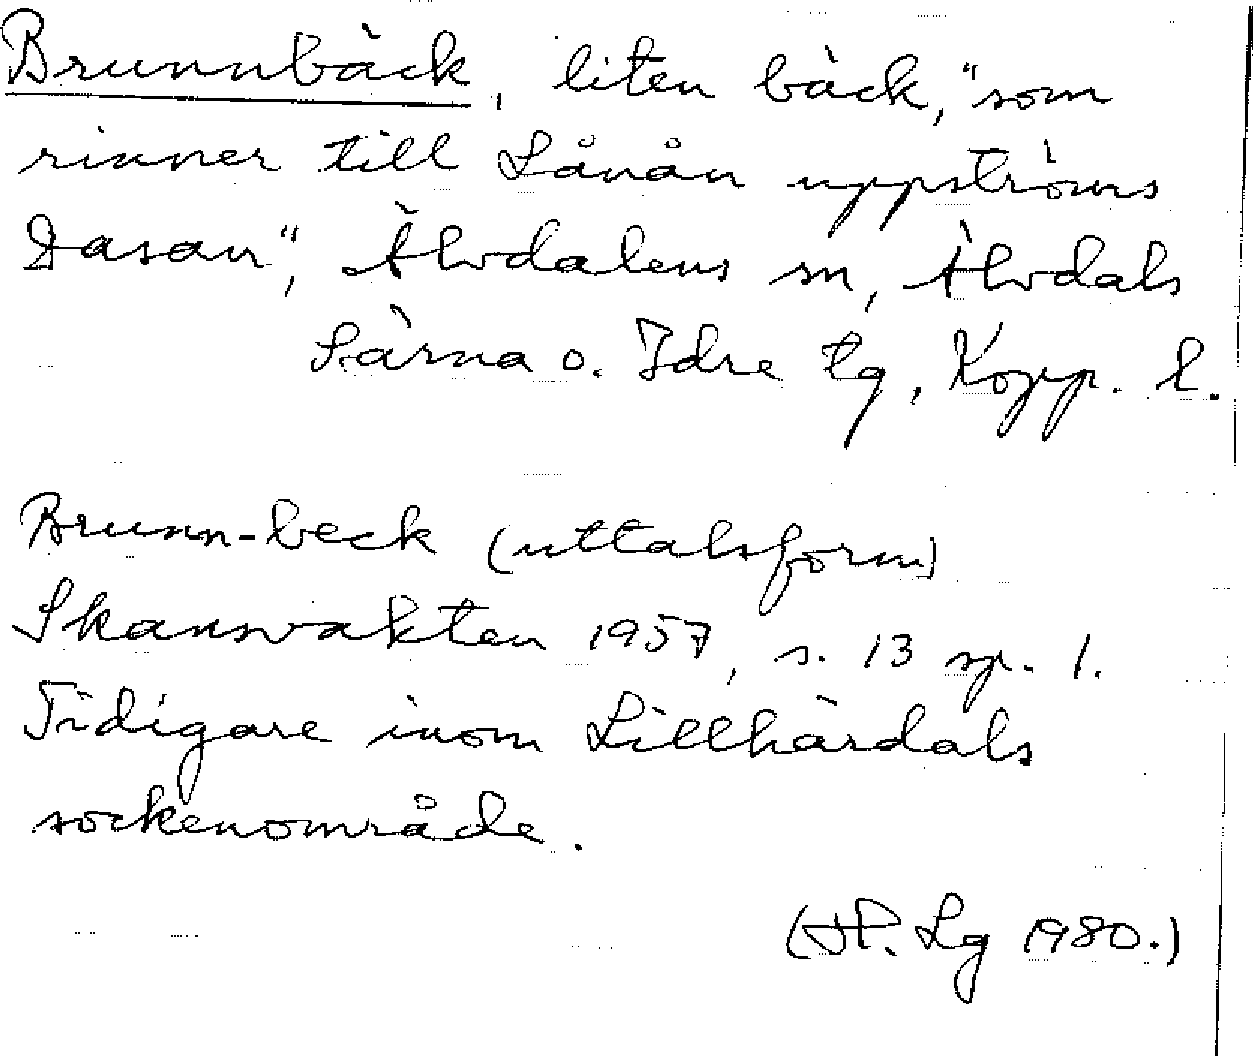 Brunnbäck, liten bäck, "som
rinner till Lånån uppströms
Dasan", Älvdalens sn, Älvdals
Särna o. Idre tg, Kopp. l.
Brunn-beck (uttalsform)
Skansvakten 1957, s. 13 sp. 1.
Tidigare inom Lillhärdals
sockenområde.
(HP. Lg 1980.)